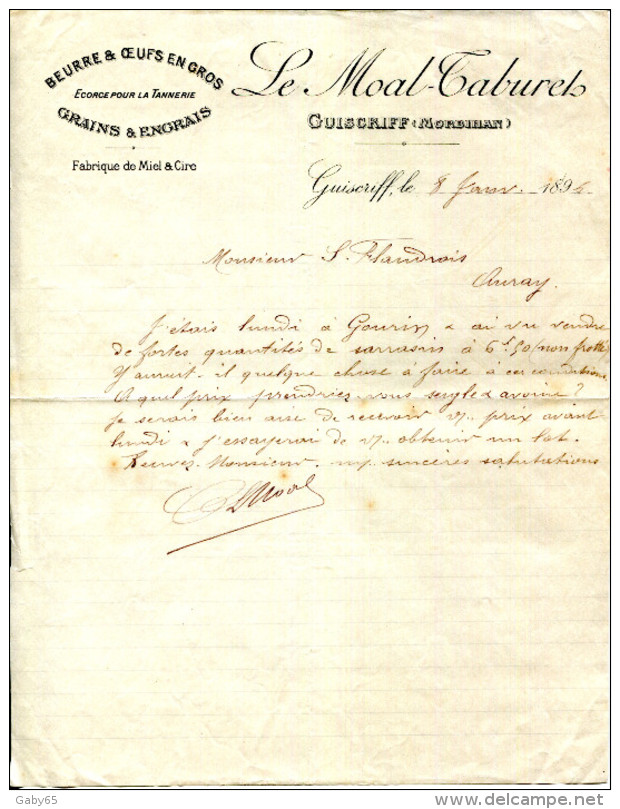 BEURRE & ŒUFS EN GROS
ECORCE POUR LA TANNERIE
GRAINS & ENGRAIS
Fabrique de Miel & Cire
Le Moal-Taburet
GUISCRIFF (MORBIHAN)
Guiscriff, le 8 Janv. 189
Monsieur S. Flandrois
Auray.
J'étais lundi à Gourin & ai vu vendre
de fortes quantités de sarrasin à 6f.50 (non frotté)
Y aurait-il quelque chose à faire à ces conditions
A quel prix prendriez-vous seigle & avoine?
Je serais bien aise de recevoir vs. prix avant
lundi & j'essayerai de vs. obtenir un lot.
Recevez Monsieur, mes sincères salutations
Le Moal
Gaby65
www.delcampe.net